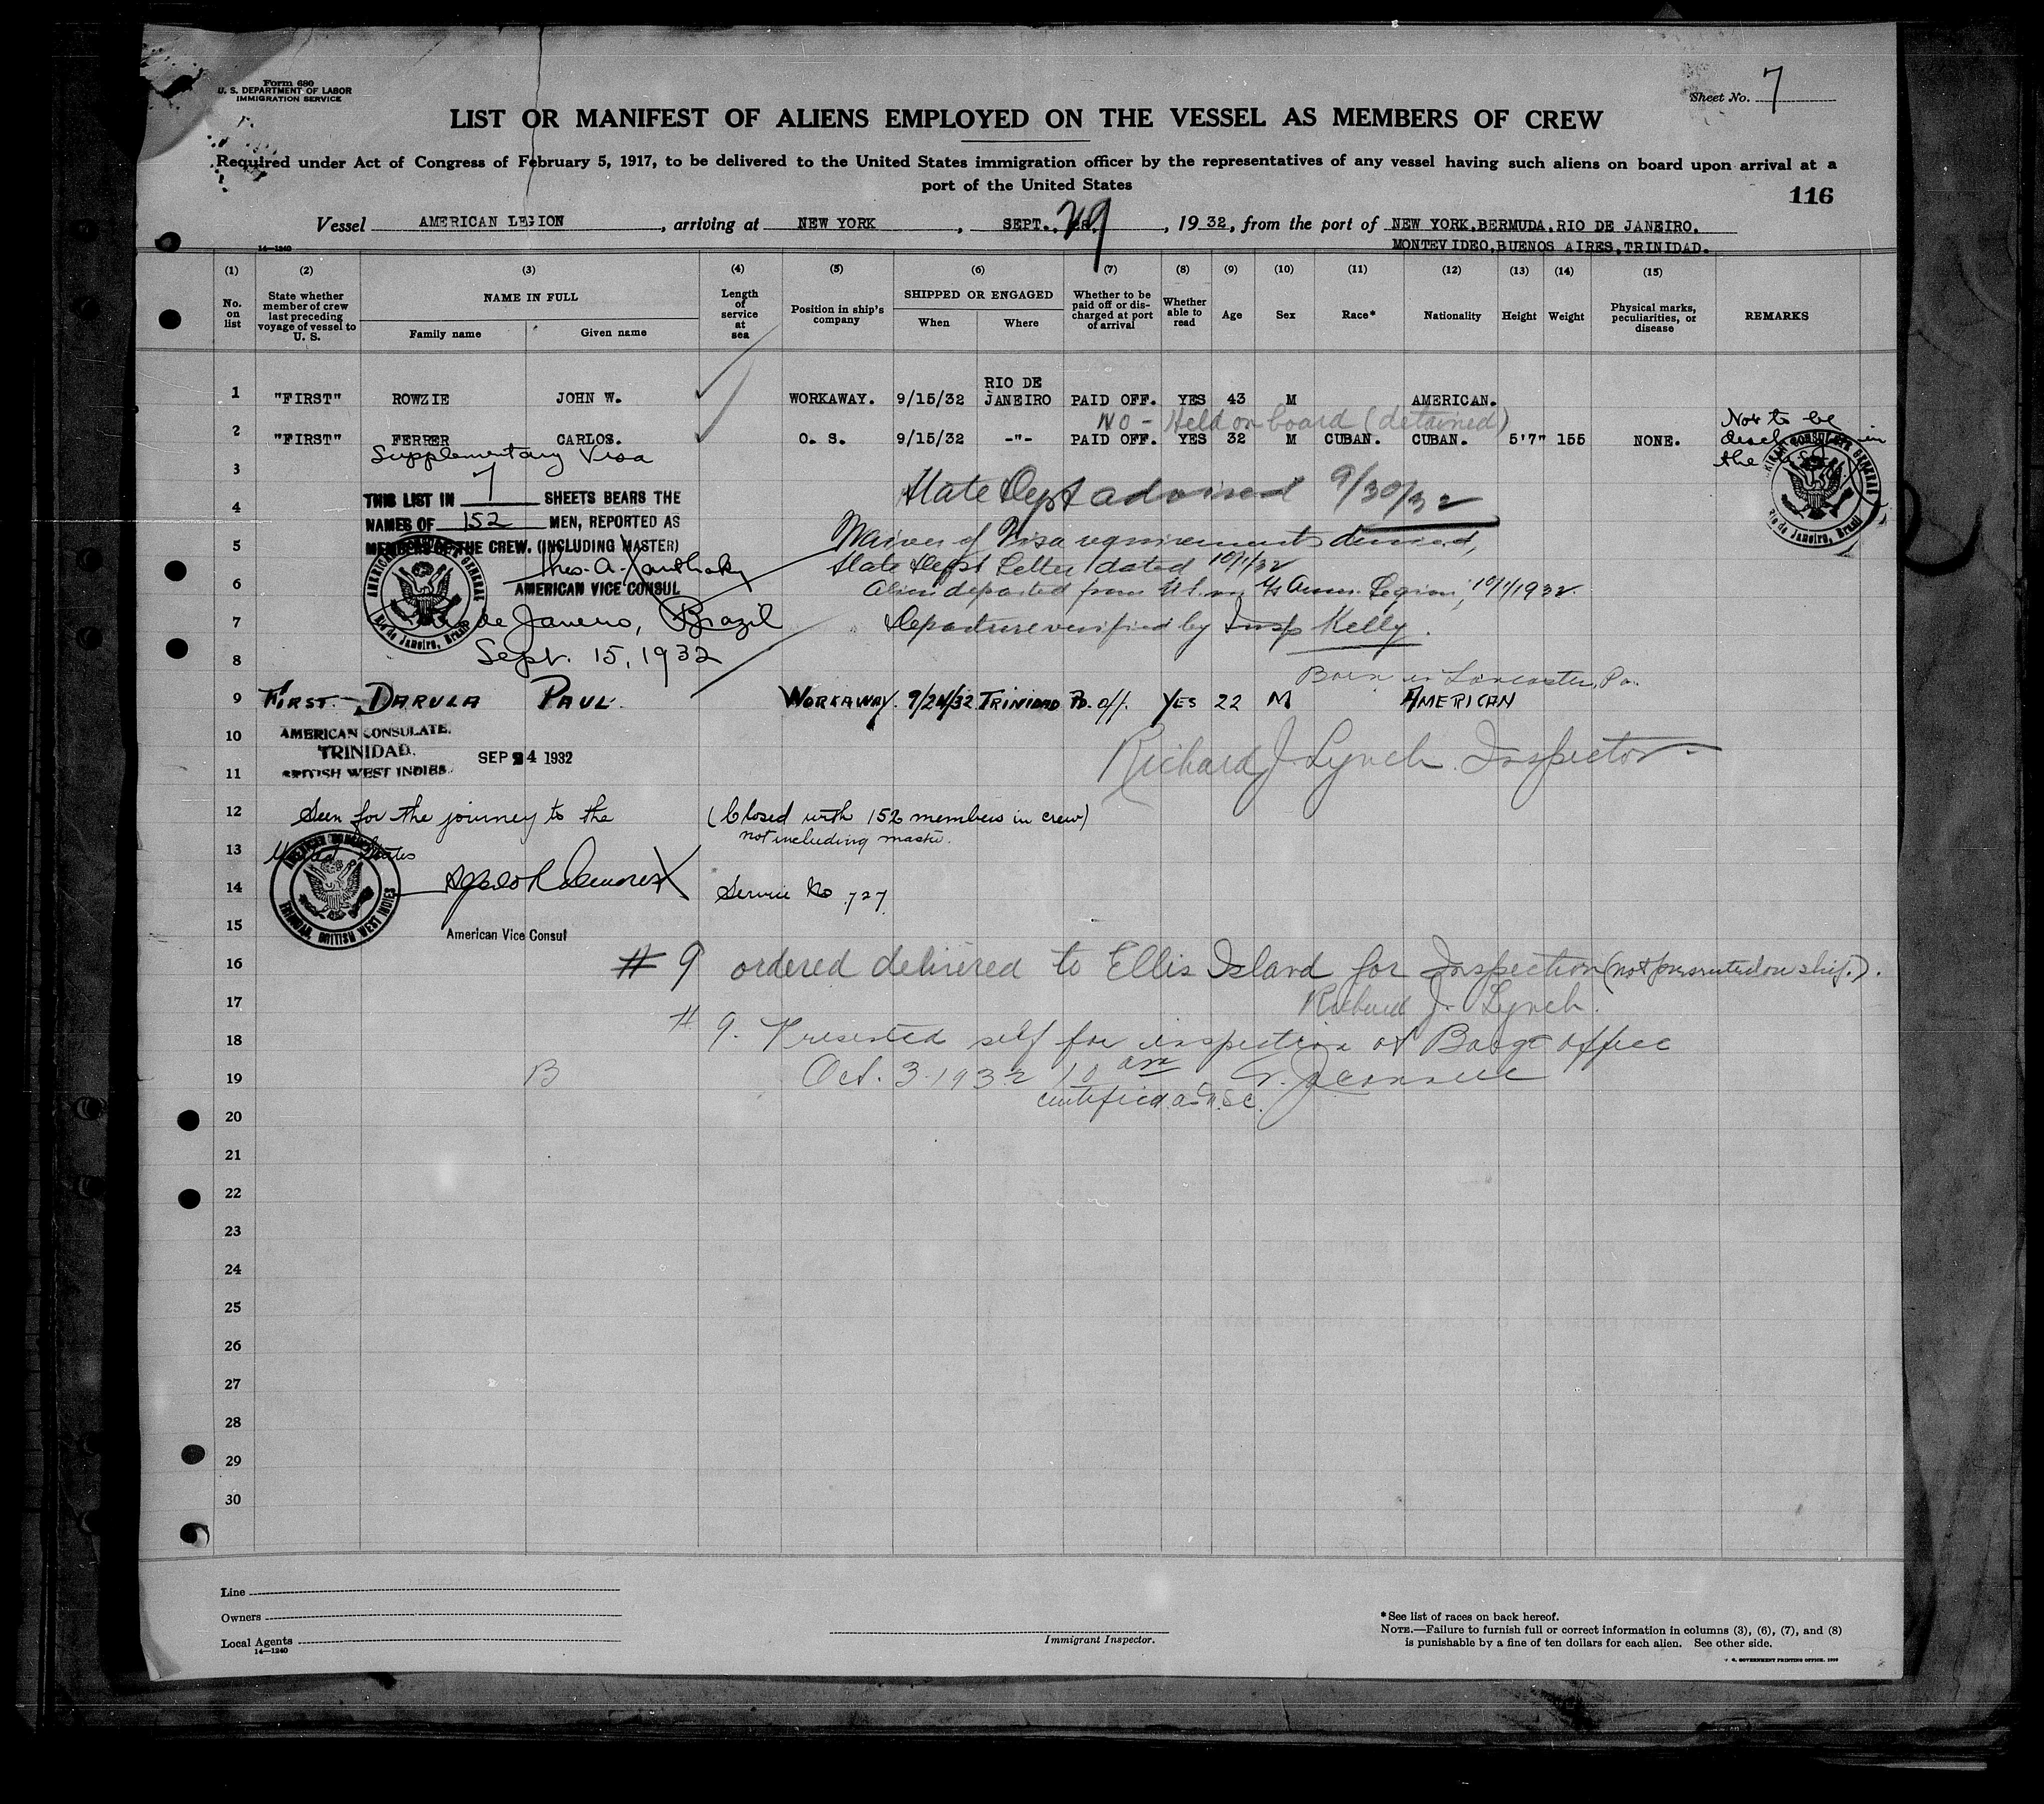 Form 680
U. S. DEPARTMENT OF LABOR
IMMIGRATION SERVICE
Sheet No. 7
LIST OR MANIFEST OF ALIENS EMPLOYED ON THE VESSEL AS MEMBERS OF CREW
Required under Act of Congress of February 5, 1917, to be delivered to the United States immigration officer by the representatives of any vessel having such aliens on board upon arrival at a
port of the United States
116
Vessel AMERICAN LEGION, arriving at NEW YORK, SEPT. 29, 1932, from the port of NEW YORK,BERMUDA,RIO DE JANEIRO,
MONTEVIDEO,BUENOS AIRES,TRINIDAD.
14—1240
(1) (2) (3) (4) (5) (6) (7) (8) (9) (10) (11) (12) (13) (14) (15)
No. on list
State whether member of crew last preceding voyage of vessel to U. S.
NAME IN FULL
Family name
Given name
Length of service at sea
Position in ship's company
SHIPPED OR ENGAGED
When
Where
Whether to be paid off or discharged at port of arrival
Whether able to read
Age
Sex
Race*
Nationality
Height
Weight
Physical marks, peculiarities, or disease
REMARKS
1 "FIRST" ROWZIE JOHN W. WORKAWAY. 9/15/32 RIO DE JANEIRO PAID OFF. YES 43 M AMERICAN.
NO - Held on board (detained)
2 "FIRST" FERRER CARLOS. O. S. 9/15/32 -"- PAID OFF. YES 32 M CUBAN. CUBAN. 5'7" 155 NONE.
Not to be
in
the
Supplementary Visa
3
THIS LIST IN 7 SHEETS BEARS THE
State Dept advised 9/30/32
4
NAMES OF 152 MEN, REPORTED AS
5
MEMBERS OF THE CREW. (INCLUDING MASTER)
Waiver of Visa requirements denied,
State Dept Letter dated 10/1/32
6
AMERICAN VICE CONSUL
Alien departed from U.S. on S/S Amer. Legion, 10/1/1932.
7
de Janeiro, Brazil
Departure verified by Insp Kelly.
Rio de Janeiro, Brazil
Rio de Janeiro, Brazil
8
Sept. 15, 1932
Born in Lancaster, Pa.
9 FIRST - DARULA PAUL. WORKAWAY. 9/24/32 TRINIDAD Pd. off. YES 22 M AMERICAN
10
AMERICAN CONSULATE.
TRINIDAD.
SEP 24 1932
BRITISH WEST INDIES.
Richard J. Lynch Inspector
11
12 Seen for the journey to the
(Closed with 152 members in crew)
not including master.
13 United States
14
Service No 727.
TRINIDAD, BRITISH WEST INDIES
15
American Vice Consul
16 # 9 ordered delivered to Ellis Island for Inspection (not presented on ship.).
17
Richard J. Lynch.
18 # 9. Presented self for inspection at Barge office
19 B Oct. 3 - 1932 10 am
certified as U.S.C.
20
21
22
23
24
25
26
27
28
29
30
Line
Owners
Local Agents
14—1240
Immigrant Inspector.
*See list of races on back hereof.
NOTE.—Failure to furnish full or correct information in columns (3), (6), (7), and (8)
is punishable by a fine of ten dollars for each alien. See other side.